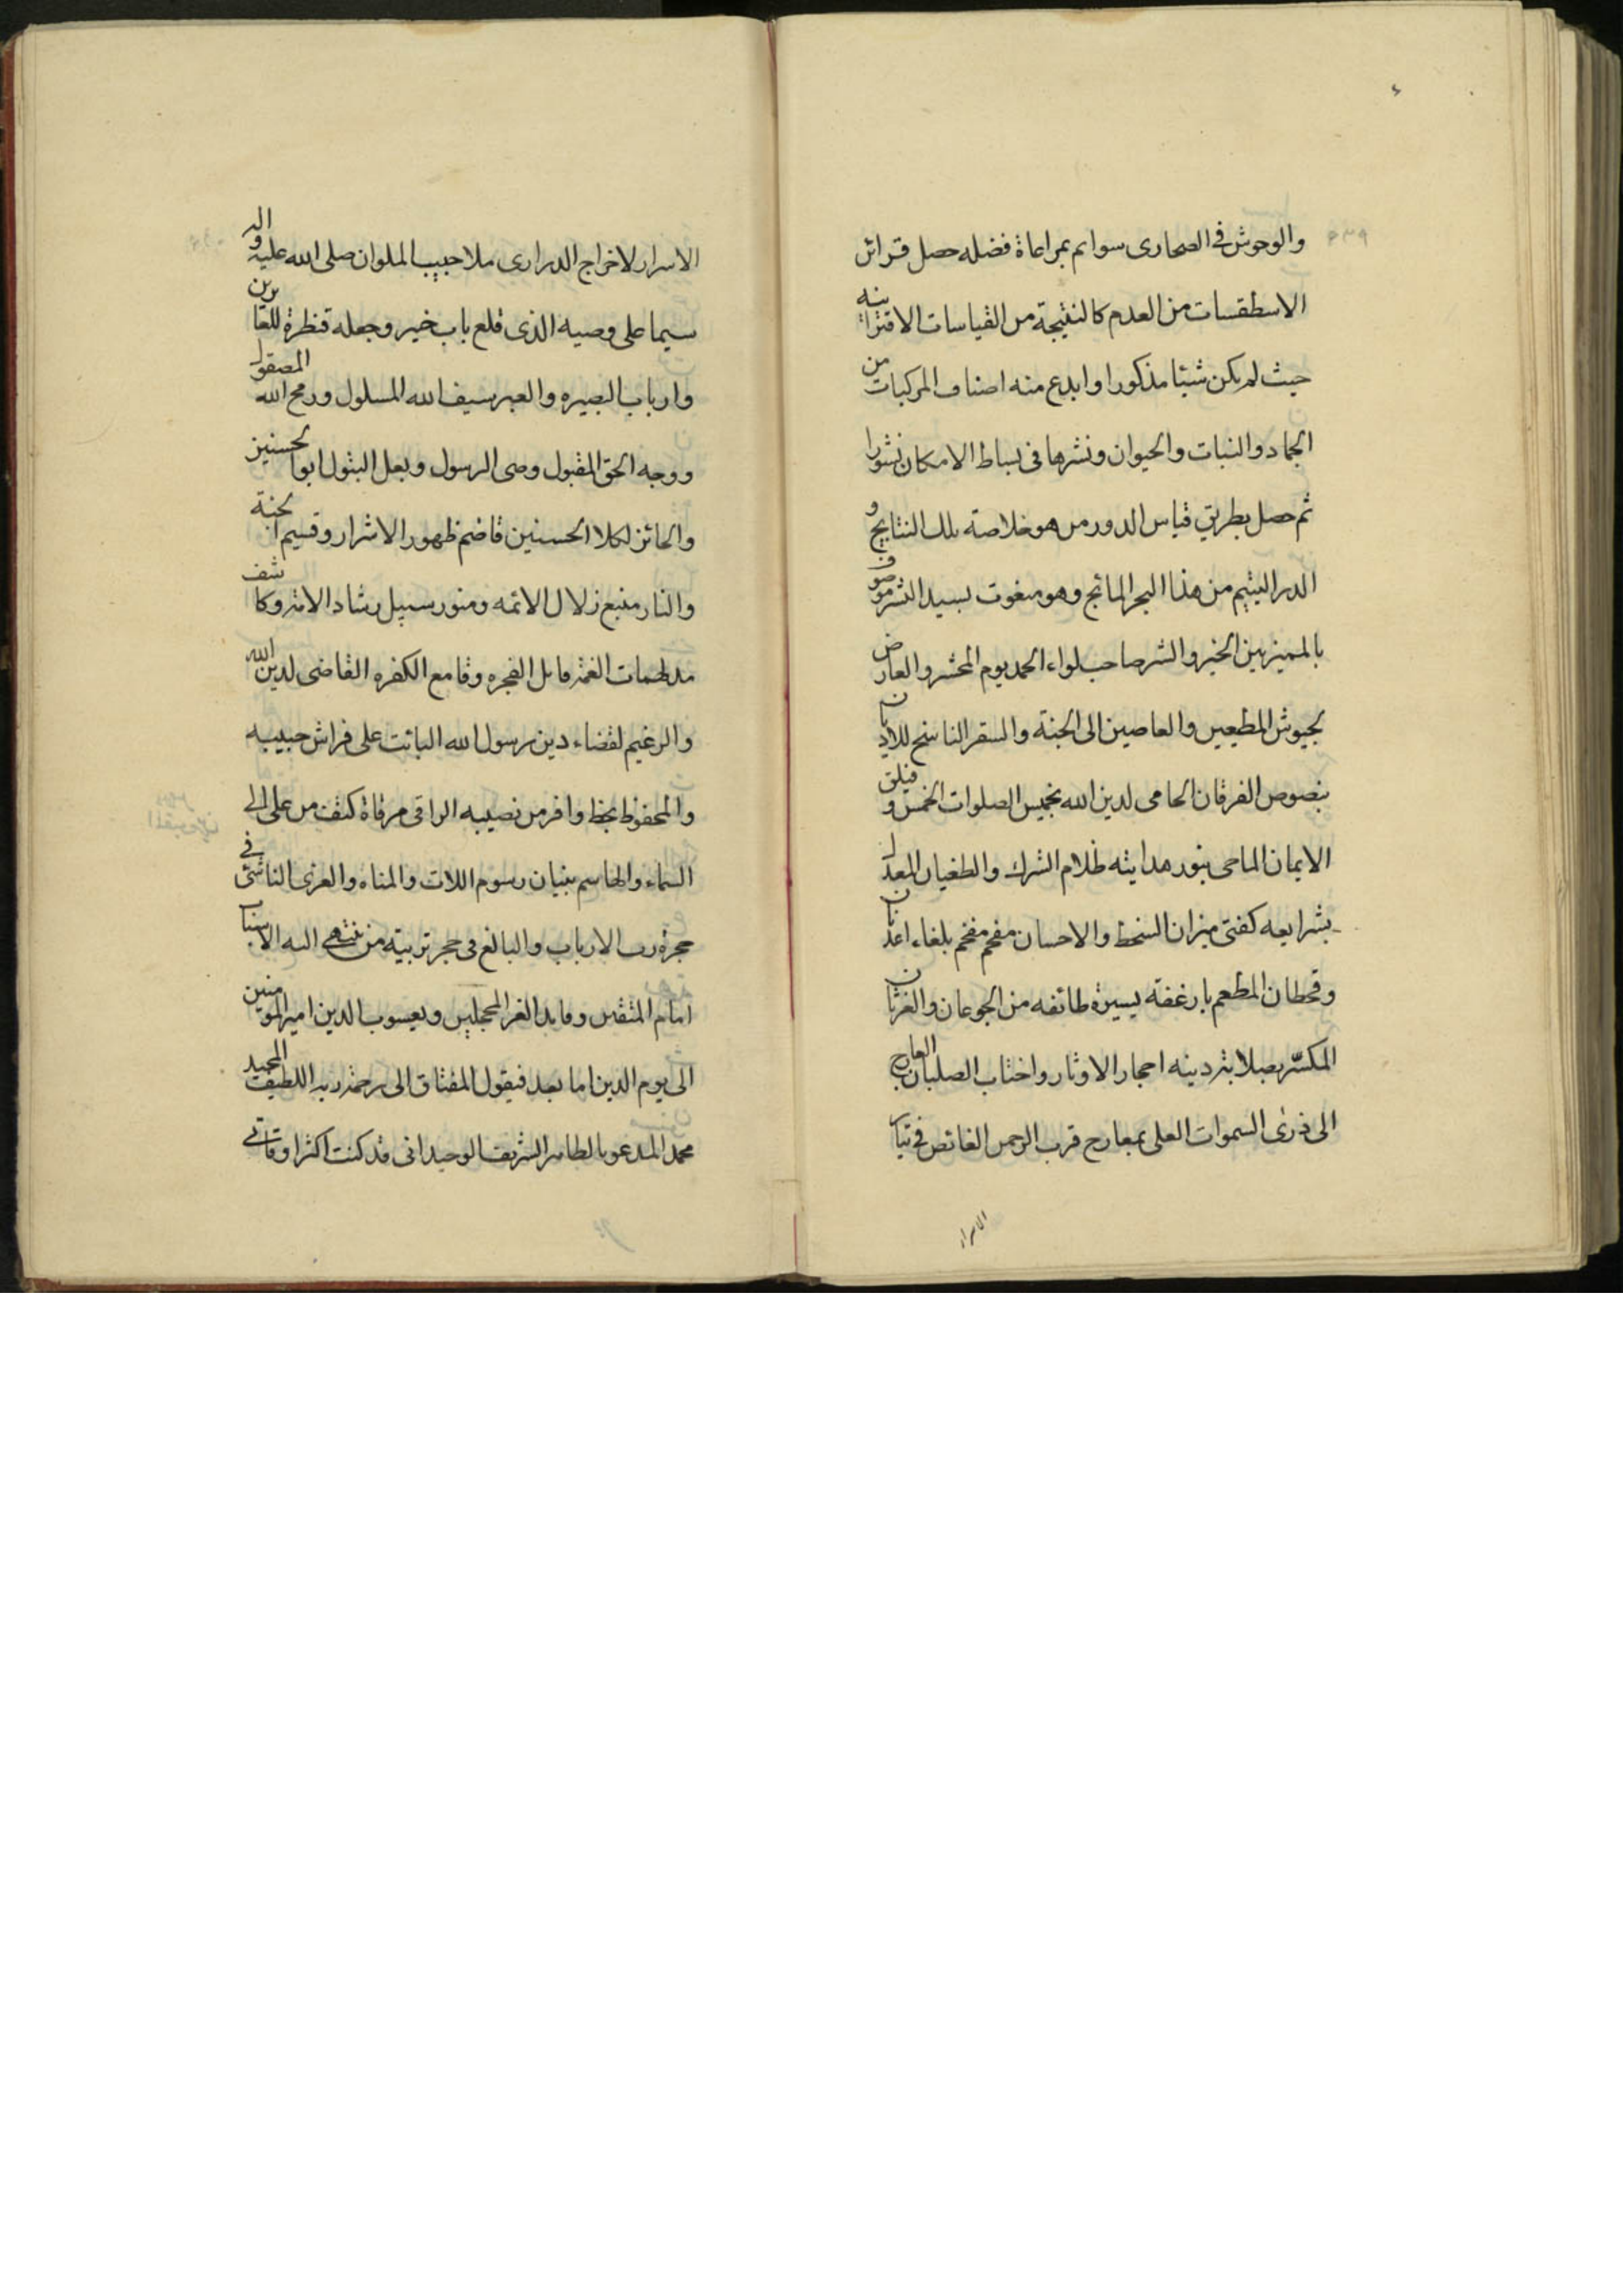 والوحوش في الصحارى سوائم بمراعاة فضله حصل قرائن
الاسطقسات من العدم كالنتيجة من القياسات الاقترانيه
حيث لم يكن شيئا مذكورا وابدع منه اصناف المركبات من
الجماد والنبات والحيوان ونشرها فى بساط الامكان نشورا
ثم حصل بطريق قياس الدور من هو خلاصة تلك النتايج و
الدر اليتيم من هذا البحر المائج وهو منعوت بسيد البشر موصوف
بالمميز بين الخير والشر صاحب لواء الحمد يوم المحشر والعارض
لجيوش المطيعين والعاصين الى الجنة والسقر الناسخ للاديان
بنصوص الفرقان الحامى لدين الله بخميس الصلوات الخمس و فيلق
الايمان الماحى بنور هدايته ظلام الشرك والطغيان المعدل
بشرايعه كفتى ميزان السخط والاحسان مفحم مفخم بلغاء عدنان
وقحطان المطعم بارغفة يسيرة طائفه من الجوعان والغرثان
المكسّر بصلابة دينه احجار الاوثان واخشاب الصلبان العارج
الى ذرى السموات العلى بمعارج قرب الرحمن الغائص فى تيار
الاسرار
الاسرار لاخراج الدرارى ملا حبيب الملوان صلى الله عليه واله
سيما على وصيه الذى قلع باب خيبر وجعله قنطرة للعابرين
وارباب البصيره والعبر سيف الله المسلول ورمح الله المصقول
ووجه الحق المقبول وصى الرسول وبعل البتول ابو الحسنين
والحائز لكلا الحسنين قاصم ظهور الاشرار وقسيم الجنة
والنار منبع زلال الائمه ومنور سبيل رشاد الامة وكاشف
مدلهمات الغمة قاتل الفجره وقامع الكفره القاضى لدين الله
والزعيم لقضاء دين رسول الله البائت على فراش حبيبه
والمحفوظ بحظ وافر من نصيبه الراقى مرقاة كتف من على الى
السماء والحاسم بنيان رسوم اللات والمناه والعزى الناشئ فى
حجرة رب الارباب والبالغ فى حجر تربيته من ينتهى اليه الاسباب
امام المتقين وقايد الغر المحجلين ويعسوب الدين امير المومنين
الى يوم الدين اما بعد فيقول المفتاق الى رحمة ربه اللطيف المجيد
محمد المدعو بالطاهر الشريف الوحيد انى قد كنت اكثر اوقاتى